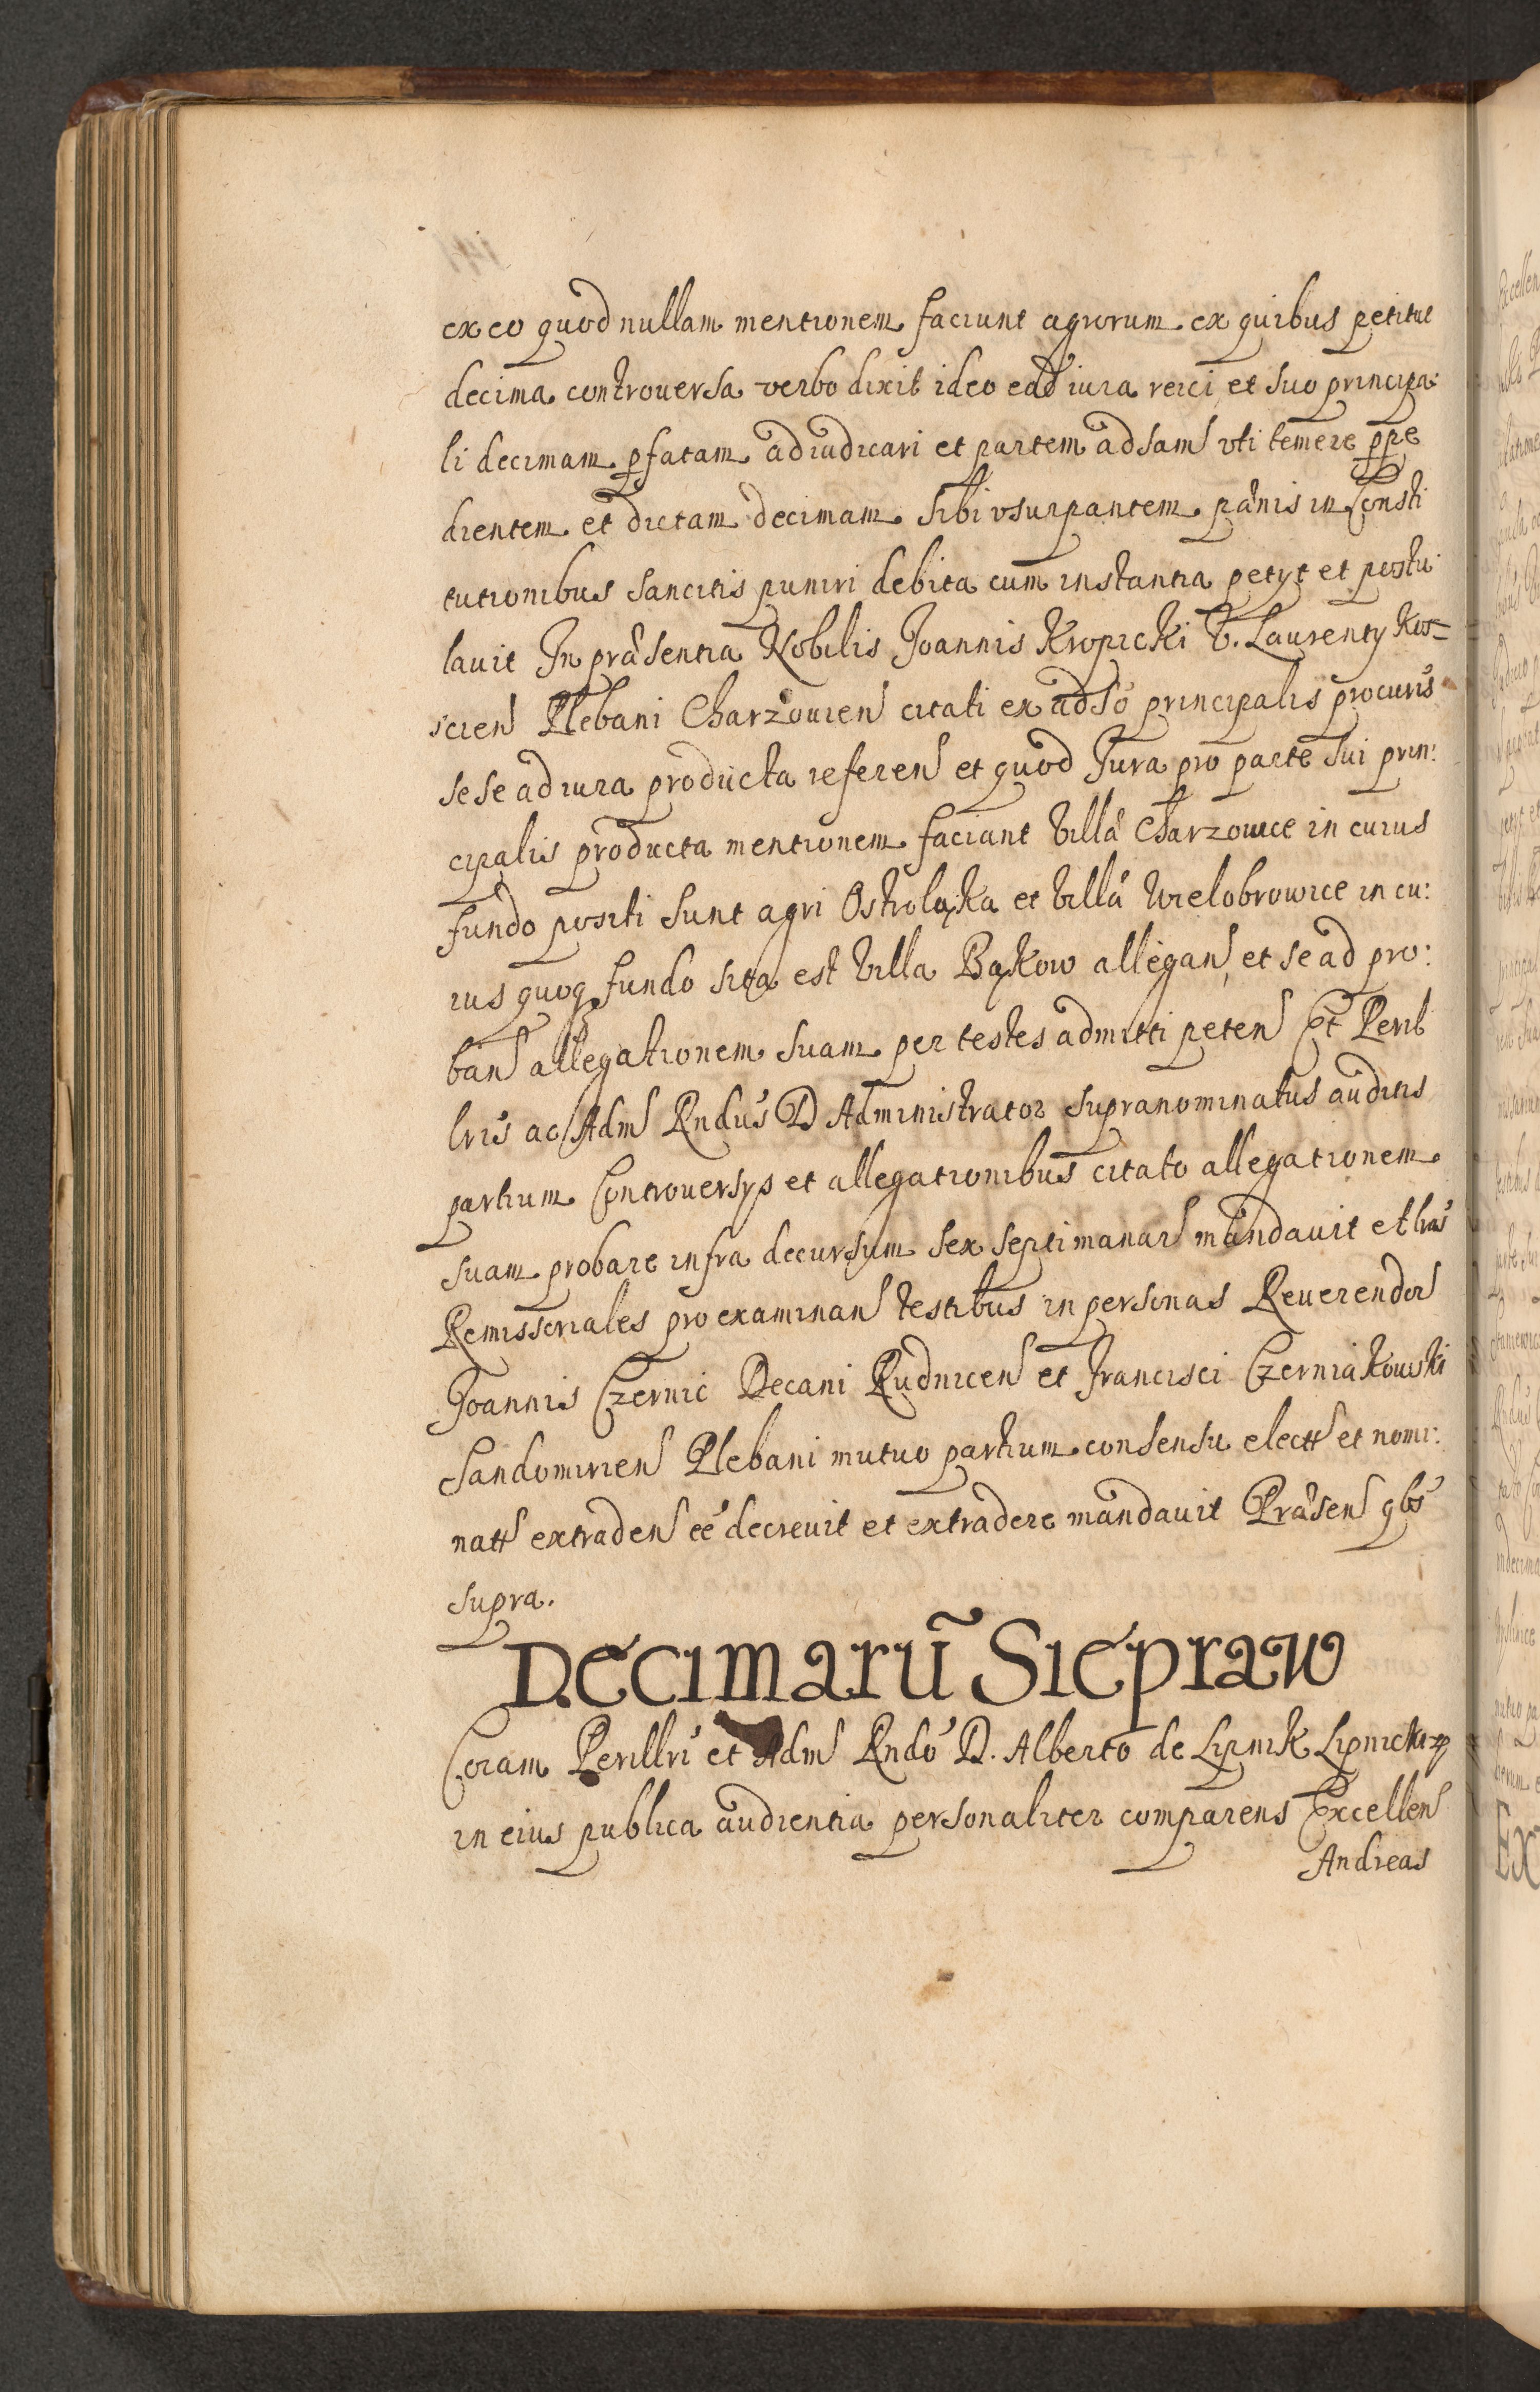 ex eo quod nullam mentionem faciunt agrorum ex quibus petitur
decima controuersa verbo dixit ideo ead iura reici et suo principa:
li decimam pfatam adiudicari et partem adsam uti temere ppe
dientem et dictam decimam sibi vsurpantem pænis in Consti
tutionibus sancitis puniri debita cum instantia petyt et postu
lauit In præsentia Nobilis Joannis Kropicki V. Laurenty Kos=
scien Plebani Charzouien citati ex adso principalis procuris
sese ad iura producta referen et quod Jura pro parte sui prin:
cipalis producta mentionem faciant villæ Charzowice in cuius
fundo positi sunt agri Ostroląka et villæ Wielobrowice in cu:
ius quoq fundo sita est villa Bąkow allegan, et se ad pro:
ban allegationem suam per testes admitti peten Et Peril
lris ac Adm Rndus D Administrator supranominatus auditis
partium Controuersys et allegationibus citato allegationem
suam probare infra decursum sex septimanar mandauit et lras
Remissoriales pro examinan testibus in personas Reuerendor
Joannis Czernic Decani Rudnicen et Francisci Czerniakowski
Sandomirien Plebani mutuo partium consensu elect et nomi:
nat extraden eé decreuit et extradere mandauit Præsen qbs
supra.
Decimarũ Siepraw
Coram Perillri et Adm Rndo D. Alberto de Lipnik Lipnicki
in eius publica audientia personaliter comparens Excellen
Andreas